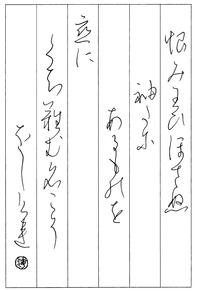 恨みわびほさぬ
袖だに
あるものを
恋に
くち難む名こそ
をしけれ